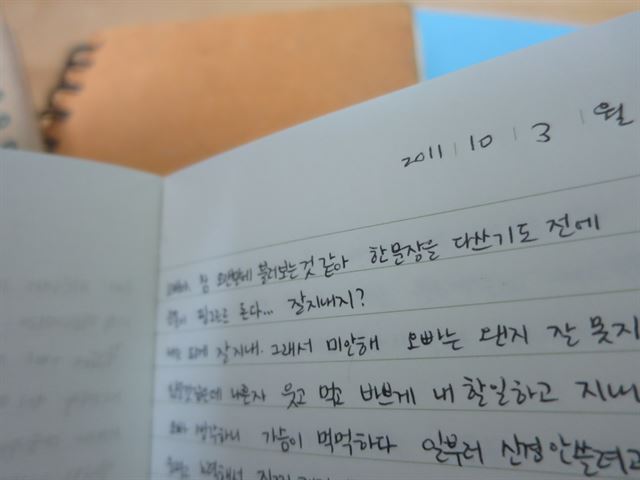 2011 | 10 | 3 | 월
참 오랜만에 불러보는것 같아 한문장을 다쓰기도 전에
핑그르르 돈다... 잘지내지?
잘지내. 그래서 미안해 오빠는 왠지 잘 못지
나혼자 웃고 먹고 바쁘게 내 할일하고 지내
오빠 생각하니 가슴이 먹먹하다 일부러 신경안쓸려고
노력해서